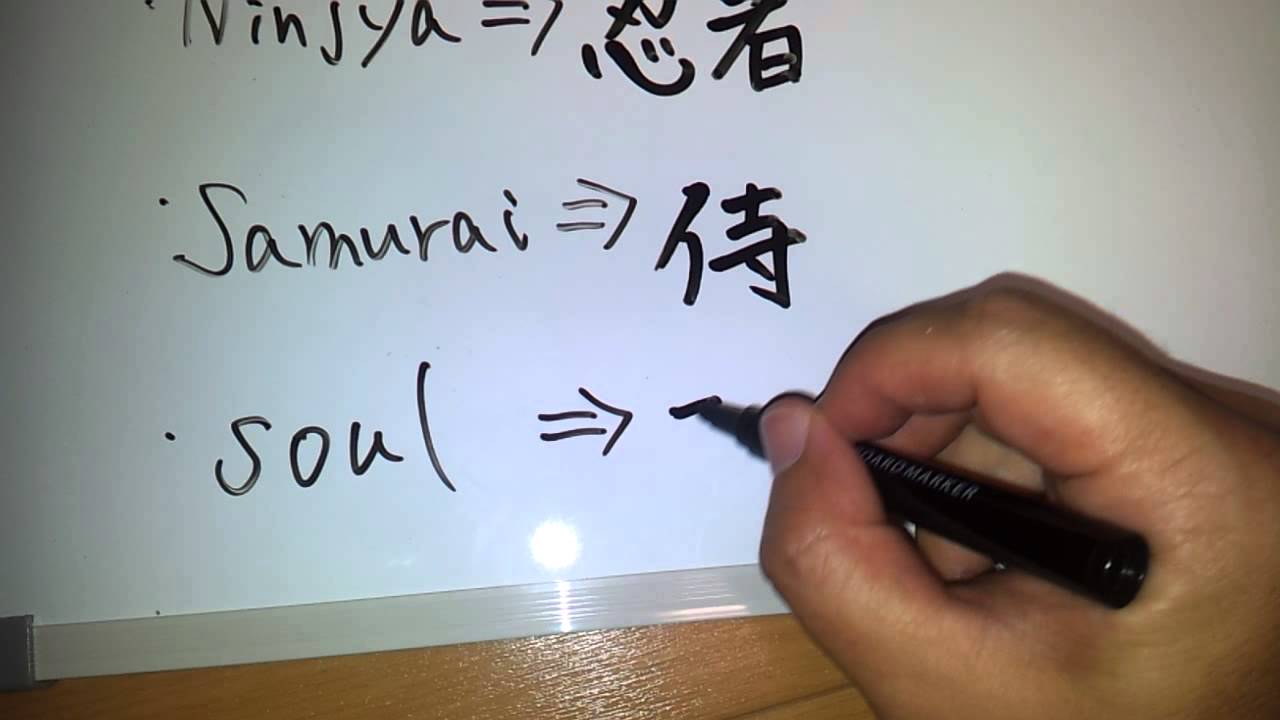 ・Ninjya ⇒ 忍者
・Samurai ⇒ 侍
・soul ⇒
BOARDMARKER